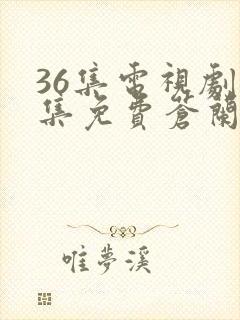 36集電視劇
集免費蒼蘭
唯夢溪